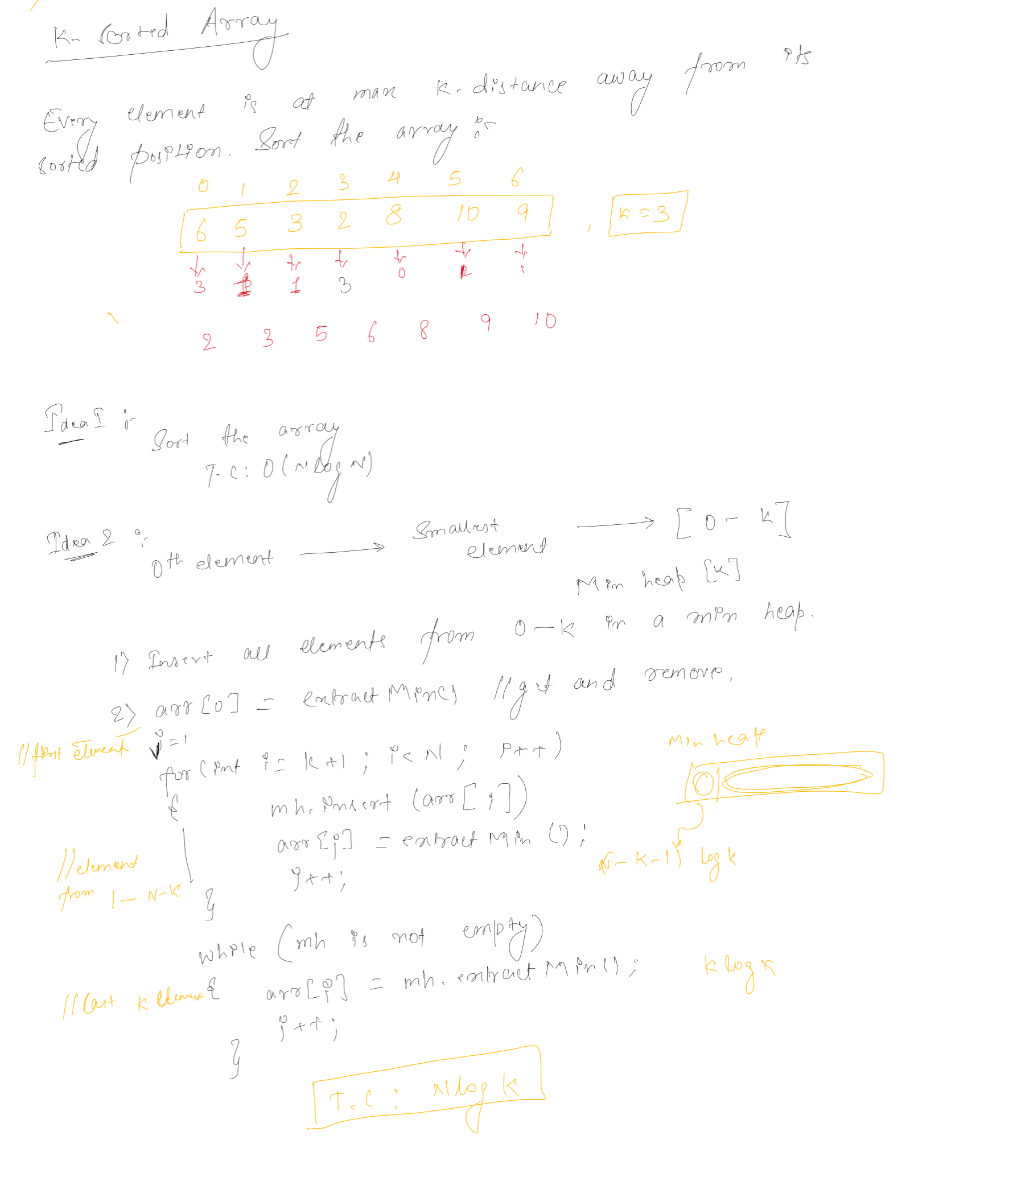 K-Sorted Array
Every element is at max k-distance away from its
sorted position. Sort the array :-
0 1 2 3 4 5 6
6 5 3 2 8 10 9 , k=3
3 1 3 0 1
2 3 5 6 8 9 10
Idea I :- Sort the array
T.C: O(N log N)
Idea 2 :- 0th element → Smallest element → [0-k]
Min heap [k]
1) Insert all elements from 0-k in a min heap.
2) arr[0] = extractMin() //get and remove.
//first element j=1
for (int i= k+1 ; i<N ; i++)
Min heap
{ mh.insert (arr[i])
arr[j] = extractMin();
(N-k-1) log k
//element from 1-N-k
j++;
}
while (mh is not empty)
//last k element { arr[j] = mh.extractMin();
k log k
j++;
}
T.C: N log k